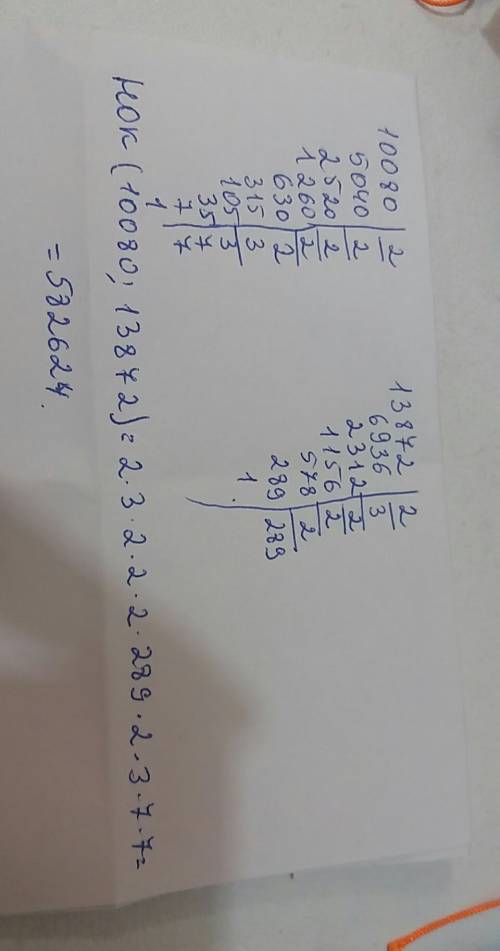 10080 | 2
5040 | 2
2520 | 2
1260 | 2
630 | 2
315 | 3
105 | 3
35 | 7
7 | 7
1
13872 | 2
6936 | 3
2312 | 2
1156 | 2
578 | 2
289 | 289
1.
НОК (10080; 13872) = 2·3·2·2·2·289·2·3·7·7=
= 582624.